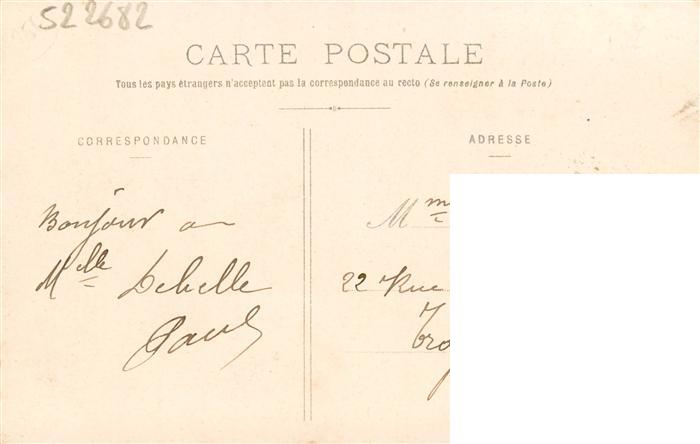 522682
CARTE POSTALE
Tous les pays étrangers n'acceptent pas la correspondance au recto (Se renseigner à la Poste)
CORRESPONDANCE
ADRESSE
Bonjour a
Melle Debelle
Paul
Mme
22 Rue
Tro